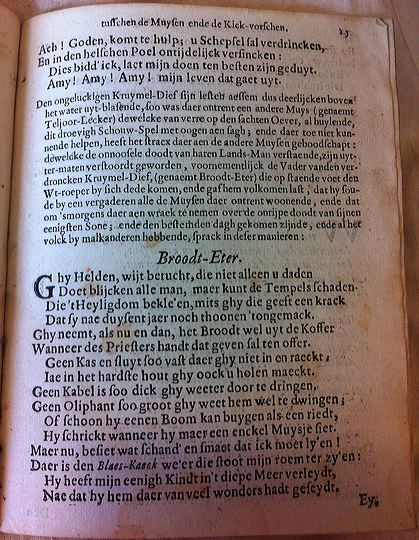 tusschen de Muysen ende de Kick-vorschen. 25
Ach! Goden, komt te hulp; u Schepsel sal verdrincken,
En in den helschen Poel ontijdelijck versincken:
Dies bidd'ick, laet mijn doen ten besten zijn geduyt.
Amy! Amy! Amy! mijn leven dat gaet uyt.
Den ongeluckigen Kruymel-Dief sijn lesten aessem dus deerlijcken boven
het water uyt-blasende, soo was daer ontrent een andere Muys (genaemt
Teljoor-Lecker) dewelcke van verre op den sachten Oever, al huylende,
dit droevigh Schouw-Spel met oogen aen sagh; ende daer toe niet kun-
nende helpen, heeft het stracx daer aen de andere Muysen geboodschapt:
dewelcke de onnoosele doodt van haren Lands-Man verstaende, zijn uyt-
ter-maten verstoordt geworden, voornementlijck de Vader vanden ver-
droncken Kruymel-Dief, (genaemt Broodt-Eter) die op staende voet den
Wt-roeper by sich dede komen, ende gaf hem volkomen last, dat hy sou-
de by een vergaderen alle de Muysen daer ontrent woonende, ende dat
om 'smorgens daer aen wraek te nemen over de onrijpe doodt van sijnen
eenigsten Sone; ende den bestemden dagh gekomen zijnde, ende al het
volck by malkanderen hebbende, sprack in deser manieren:
Broodt-Eter.
Ghy Helden, wijt berucht, die niet alleen u daden
Doet blijcken alle man, maer kunt de Tempels schaden.
Die 't Heyligdom bekle'en, mits ghy die geeft een krack
Dat sy nae duysent jaer noch thoonen 't ongemack.
Ghy neemt, als nu en dan, het Broodt wel uyt de Koffer
Wanneer des Priesters handt dat geven sal ten offer.
Geen Kas en sluyt soo vast daer ghy niet in en raeckt;
Iae in het hardste hout ghy oock u holen maeckt.
Geen Kabel is soo dick ghy weeter door te dringen.
Geen Oliphant soo groot ghy weet hem wel te dwingen;
Of schoon hy eenen Boom kan buygen als een riedt,
Hy schrickt wanneer hy maer een enckel Muysje siet.
Maer nu, besiet wat schand' en smaet dat ick moet ly'en!
Daer is den Blaes-Kaeck we'er die stoot mijn roem ter zy'en:
Hy heeft mijn eenigh Kindt in't diepe Meer verleydt,
Nae dat hy hem daer van veel wonders hadt geseydt.
Ey,